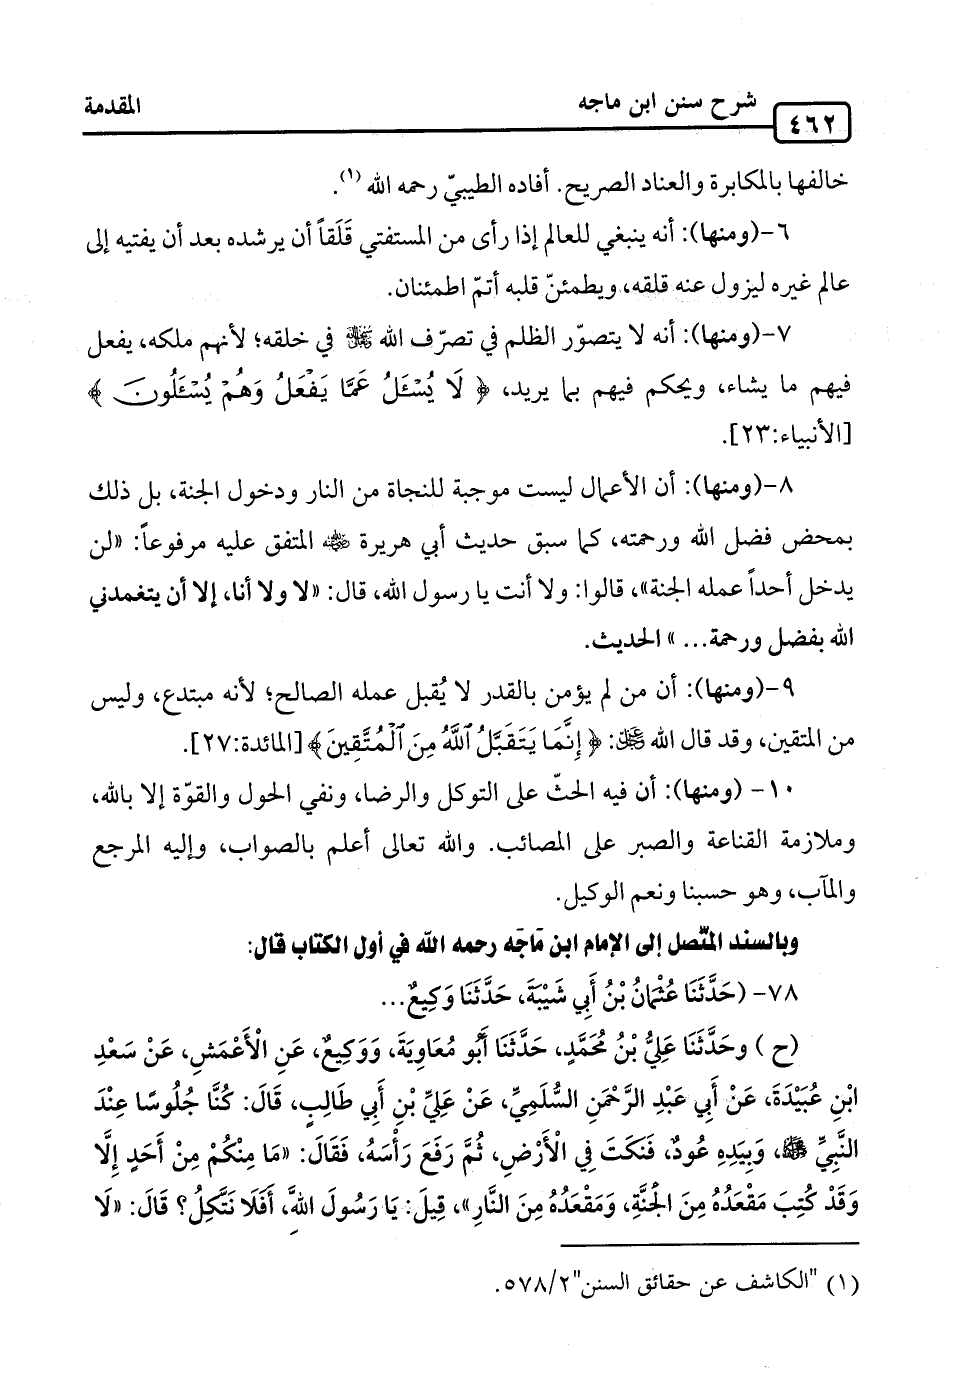 شرح سنن ابن ماجه
المقدمة
٤٦٢
خالفها بالمكابرة والعناد الصريح. أفاده الطيبيّ رحمه الله (١).
٦-(ومنها): أنه ينبغي للعالم إذا رأى من المستفتي قَلَقاً أن يرشده بعد أن يفتيه إلى
عالم غيره ليزول عنه قلقه، ويطمئنّ قلبه أتمّ اطمئنان.
٧-(ومنها): أنه لا يتصوّر الظلم في تصرّف الله ﷻ في خلقه؛ لأنهم ملكه، يفعل
فيهم ما يشاء، ويحكم فيهم بما يريد، ﴿ لَا يُسْـَٔلُ عَمَّا يَفْعَلُ وَهُمْ يُسْـَٔلُونَ ﴾
[الأنبياء:٢٣].
٨-(ومنها): أن الأعمال ليست موجبة للنجاة من النار ودخول الجنة، بل ذلك
بمحض فضل الله ورحمته، كما سبق حديث أبي هريرة ﵁ المتفق عليه مرفوعاً: «لن
يدخل أحداً عمله الجنة»، قالوا: ولا أنت يا رسول الله، قال: «لا ولا أنا، إلا أن يتغمدني
الله بفضل ورحمة... » الحديث.
٩-(ومنها): أن من لم يؤمن بالقدر لا يُقبل عمله الصالح؛ لأنه مبتدع، وليس
من المتقين، وقد قال الله ﷻ: ﴿ إِنَّمَا يَتَقَبَّلُ ٱللَّهُ مِنَ ٱلْمُتَّقِينَ﴾ [المائدة:٢٧].
١٠- (ومنها): أن فيه الحثّ على التوكل والرضا، ونفي الحول والقوّة إلا بالله،
وملازمة القناعة والصبر على المصائب. والله تعالى أعلم بالصواب، وإليه المرجع
والمآب، وهو حسبنا ونعم الوكيل.
وبالسند المتّصل إلى الإمام ابن مَاجَه رحمه الله في أول الكتاب قال:
٧٨- (حَدَّثَنَا عُثْمَانُ بْنُ أَبِي شَيْبَةَ، حَدَّثَنَا وَكِيعٌ...
(ح ) وحَدَّثَنَا عَلِيُّ بْنُ مُحَمَّدٍ، حَدَّثَنَا أَبُو مُعَاوِيَةَ، وَوَكِيعٌ، عَنِ الْأَعْمَشِ، عَنْ سَعْدِ
ابْنِ عُبَيْدَةَ، عَنْ أَبِي عَبْدِ الرَّحْمَنِ السُّلَمِيِّ، عَنْ عَلِيِّ بْنِ أَبِي طَالِبٍ، قَالَ: كُنَّا جُلُوسًا عِنْدَ
النَّبِيِّ ﷺ، وَبِيَدِهِ عُودٌ، فَنَكَتَ فِي الْأَرْضِ، ثُمَّ رَفَعَ رَأْسَهُ، فَقَالَ: «مَا مِنْكُمْ مِنْ أَحَدٍ إِلَّا
وَقَدْ كُتِبَ مَقْعَدُهُ مِنَ الْجَنَّةِ، وَمَقْعَدُهُ مِنَ النَّارِ»، قِيلَ: يَا رَسُولَ اللهِ، أَفَلَا نَتَّكِلُ؟ قَالَ: «لَا
(١) "الكاشف عن حقائق السنن"٢/ ٥٧٨.